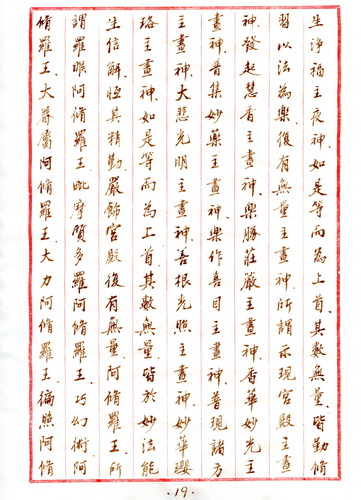 生淨福主夜神、如是等而為上首、其數無量、皆勤脩
習以法為樂、復有無量主晝神、所謂示現宮殿主晝
神、發起慧香主晝神、樂勝莊嚴主晝神、香華妙光主
晝神、普集妙藥主晝神、樂作喜目主晝神、普現諸方
主晝神、大悲光明主晝神、善根光照主晝神、妙華瓔
珞主晝神、如是等而為上首、其數無量、皆於妙法能
生信解、恆共精勤、嚴飾宮殿、復有無量阿脩羅王、所
謂羅睺阿脩羅王、毗摩質多羅阿脩羅王、巧幻術阿
脩羅王、大眷屬阿脩羅王、大力阿脩羅王、徧照阿脩
·19·